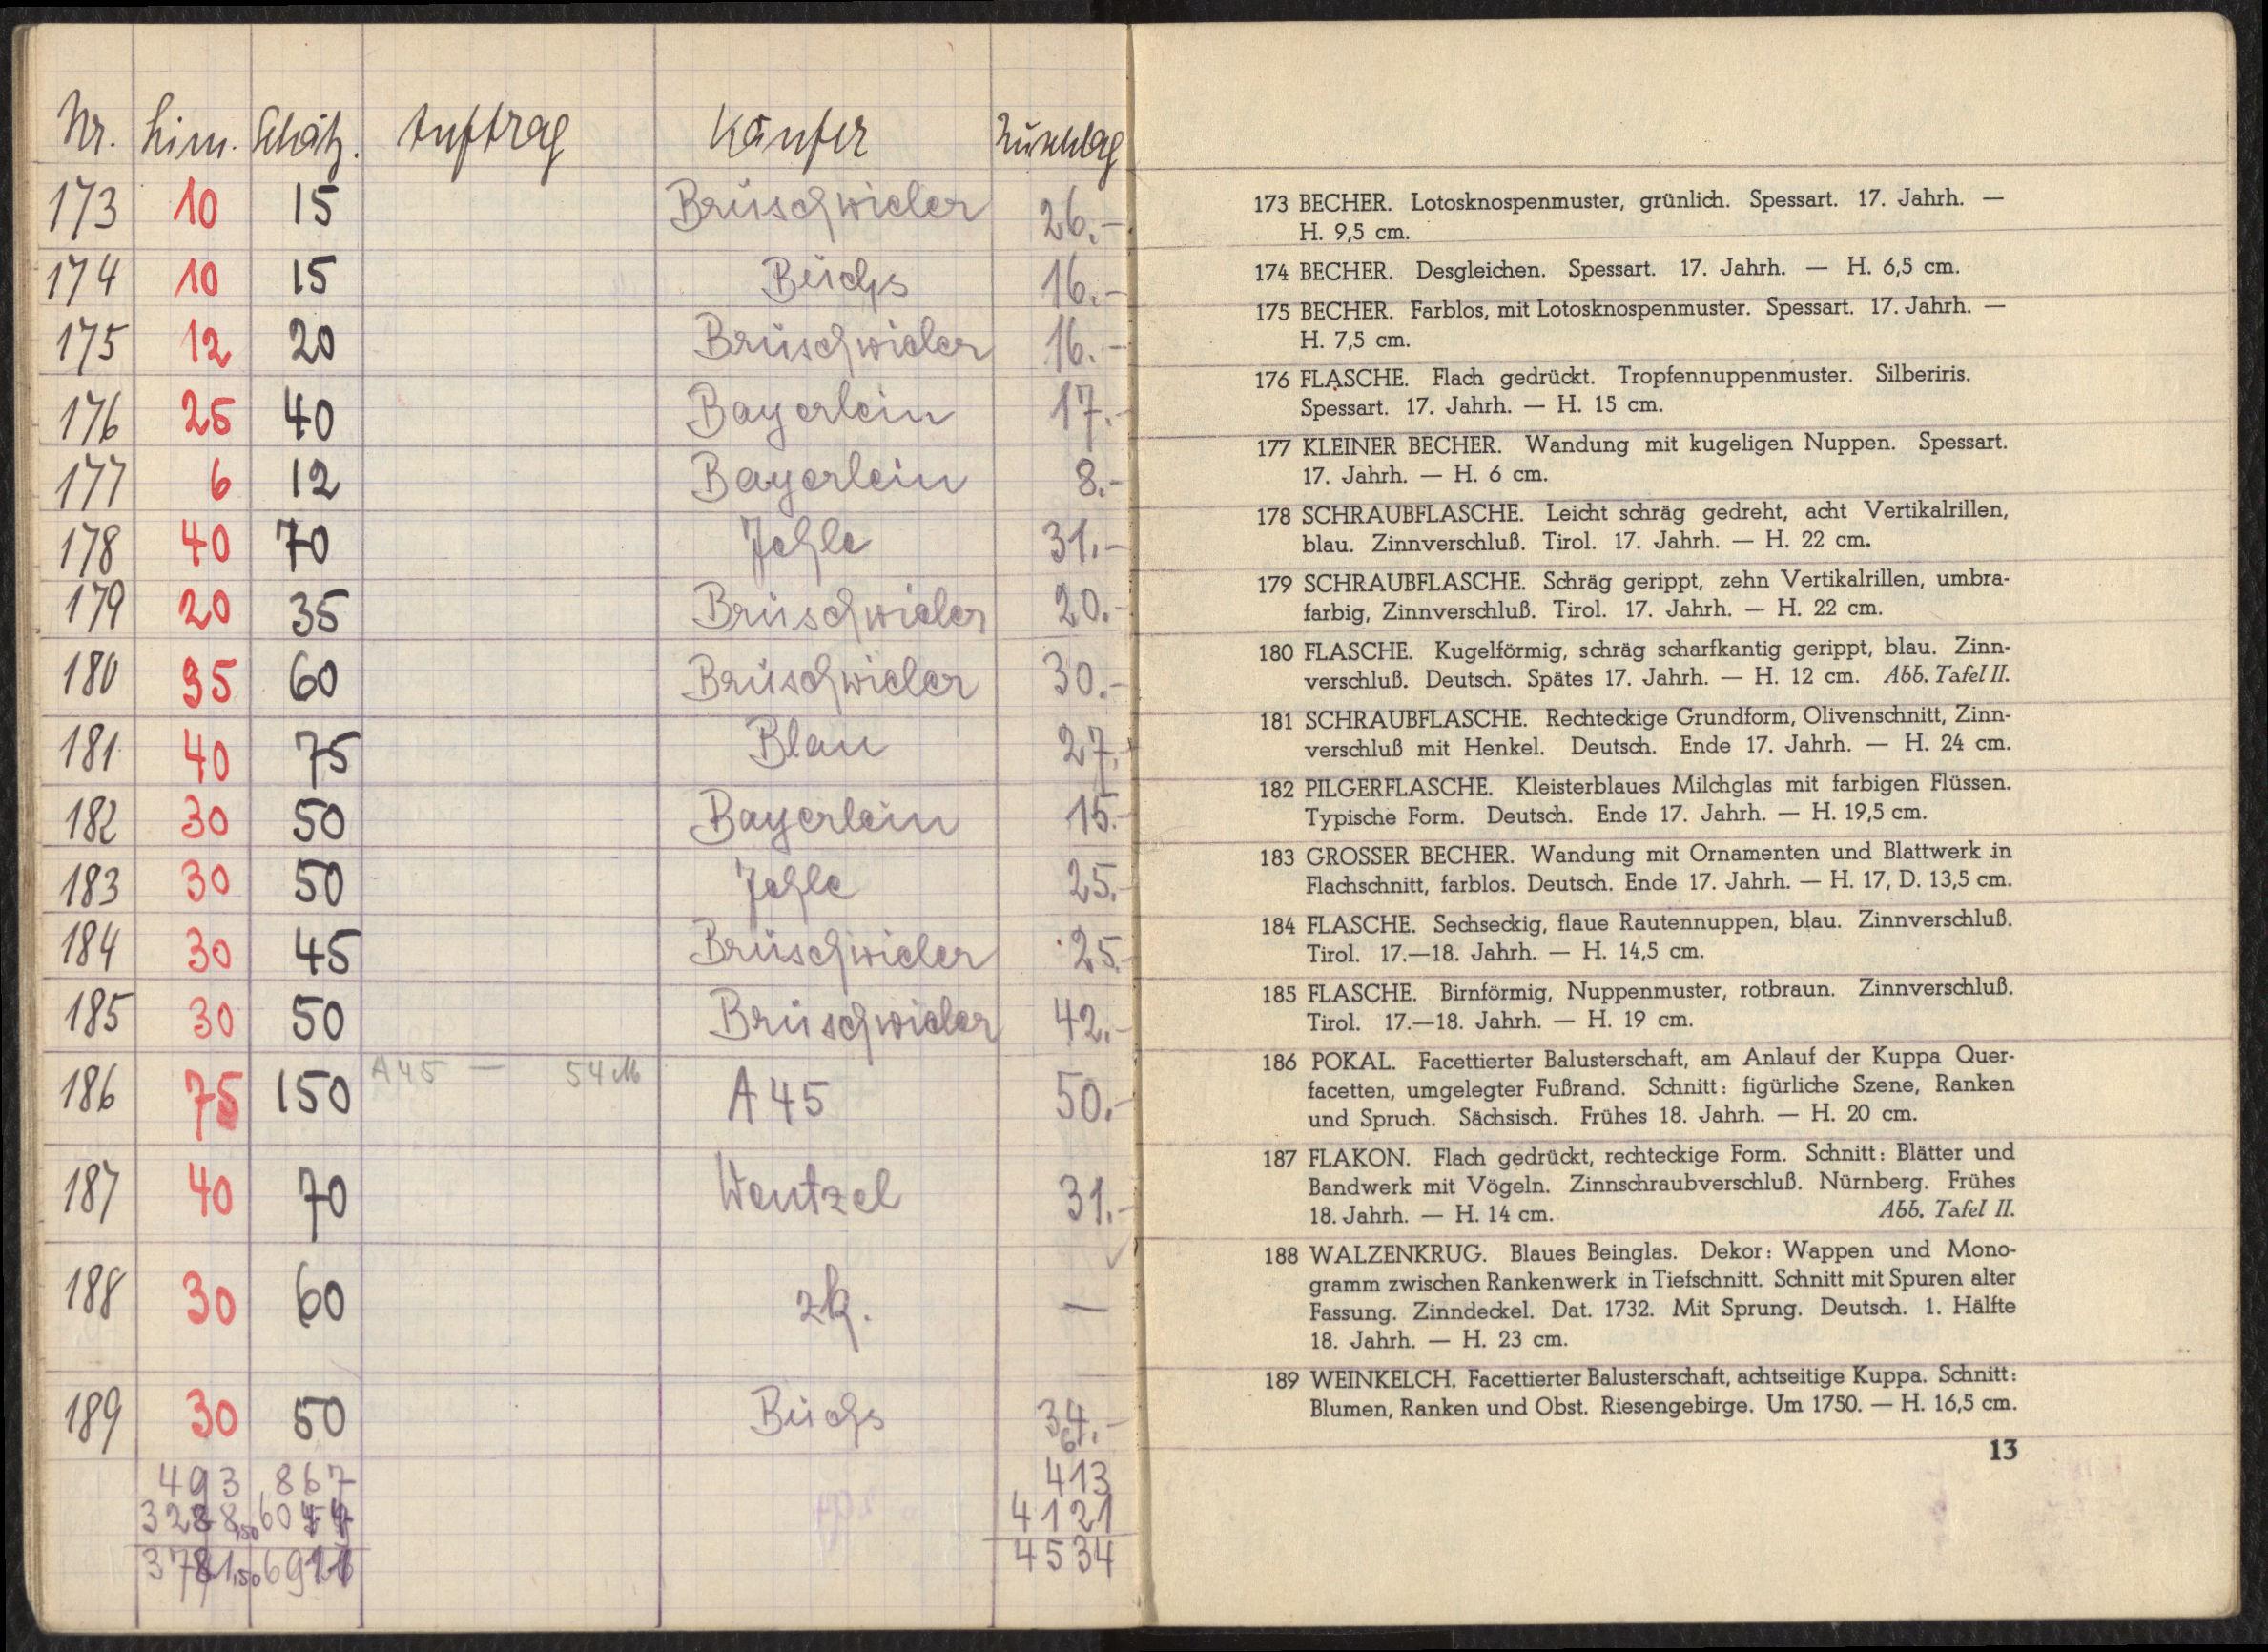 Nr. Lim. Schätz. Auftrag Käufer Zuschlag
173 10 15 Brüschwieler 26.-
174 10 15 Büchs 16.-
175 12 20 Brüschwieler 16.-
176 25 40 Bayerlein 17.-
177 6 12 Bayerlein 8.-
178 40 70 Jehle 31.-
179 20 35 Brüschwieler 20.-
180 35 60 Brüschwieler 30.-
181 40 75 Blau 27.-
182 30 50 Bayerlein 15.-
183 30 50 Jehle 25.-
184 30 45 Brüschwieler 25.-
185 30 50 Brüschwieler 42.-
186 75 150 A45 — 54 M A 45 50.-
187 40 70 Wentzel 31.-
188 30 60 zk. —
189 30 50 Büchs 34.-
493 867 413
4121
4534
173 BECHER. Lotosknospenmuster, grünlich. Spessart. 17. Jahrh. —
H. 9,5 cm.
174 BECHER. Desgleichen. Spessart. 17. Jahrh. — H. 6,5 cm.
175 BECHER. Farblos, mit Lotosknospenmuster. Spessart. 17. Jahrh. —
H. 7,5 cm.
176 FLASCHE. Flach gedrückt. Tropfennuppenmuster. Silberiris.
Spessart. 17. Jahrh. — H. 15 cm.
177 KLEINER BECHER. Wandung mit kugeligen Nuppen. Spessart.
17. Jahrh. — H. 6 cm.
178 SCHRAUBFLASCHE. Leicht schräg gedreht, acht Vertikalrillen,
blau. Zinnverschluß. Tirol. 17. Jahrh. — H. 22 cm.
179 SCHRAUBFLASCHE. Schräg gerippt, zehn Vertikalrillen, umbra-
farbig, Zinnverschluß. Tirol. 17. Jahrh. — H. 22 cm.
180 FLASCHE. Kugelförmig, schräg scharfkantig gerippt, blau. Zinn-
verschluß. Deutsch. Spätes 17. Jahrh. — H. 12 cm. Abb. Tafel II.
181 SCHRAUBFLASCHE. Rechteckige Grundform, Olivenschnitt, Zinn-
verschluß mit Henkel. Deutsch. Ende 17. Jahrh. — H. 24 cm.
182 PILGERFLASCHE. Kleisterblaues Milchglas mit farbigen Flüssen.
Typische Form. Deutsch. Ende 17. Jahrh. — H. 19,5 cm.
183 GROSSER BECHER. Wandung mit Ornamenten und Blattwerk in
Flachschnitt, farblos. Deutsch. Ende 17. Jahrh. — H. 17, D. 13,5 cm.
184 FLASCHE. Sechseckig, flaue Rautennuppen, blau. Zinnverschluß.
Tirol. 17.—18. Jahrh. — H. 14,5 cm.
185 FLASCHE. Birnförmig, Nuppenmuster, rotbraun. Zinnverschluß.
Tirol. 17.—18. Jahrh. — H. 19 cm.
186 POKAL. Facettierter Balusterschaft, am Anlauf der Kuppa Quer-
facetten, umgelegter Fußrand. Schnitt: figürliche Szene, Ranken
und Spruch. Sächsisch. Frühes 18. Jahrh. — H. 20 cm.
187 FLAKON. Flach gedrückt, rechteckige Form. Schnitt: Blätter und
Bandwerk mit Vögeln. Zinnschraubverschluß. Nürnberg. Frühes
18. Jahrh. — H. 14 cm. Abb. Tafel II.
188 WALZENKRUG. Blaues Beinglas. Dekor: Wappen und Mono-
gramm zwischen Rankenwerk in Tiefschnitt. Schnitt mit Spuren alter
Fassung. Zinndeckel. Dat. 1732. Mit Sprung. Deutsch. 1. Hälfte
18. Jahrh. — H. 23 cm.
189 WEINKELCH. Facettierter Balusterschaft, achtseitige Kuppa. Schnitt:
Blumen, Ranken und Obst. Riesengebirge. Um 1750. — H. 16,5 cm.
13